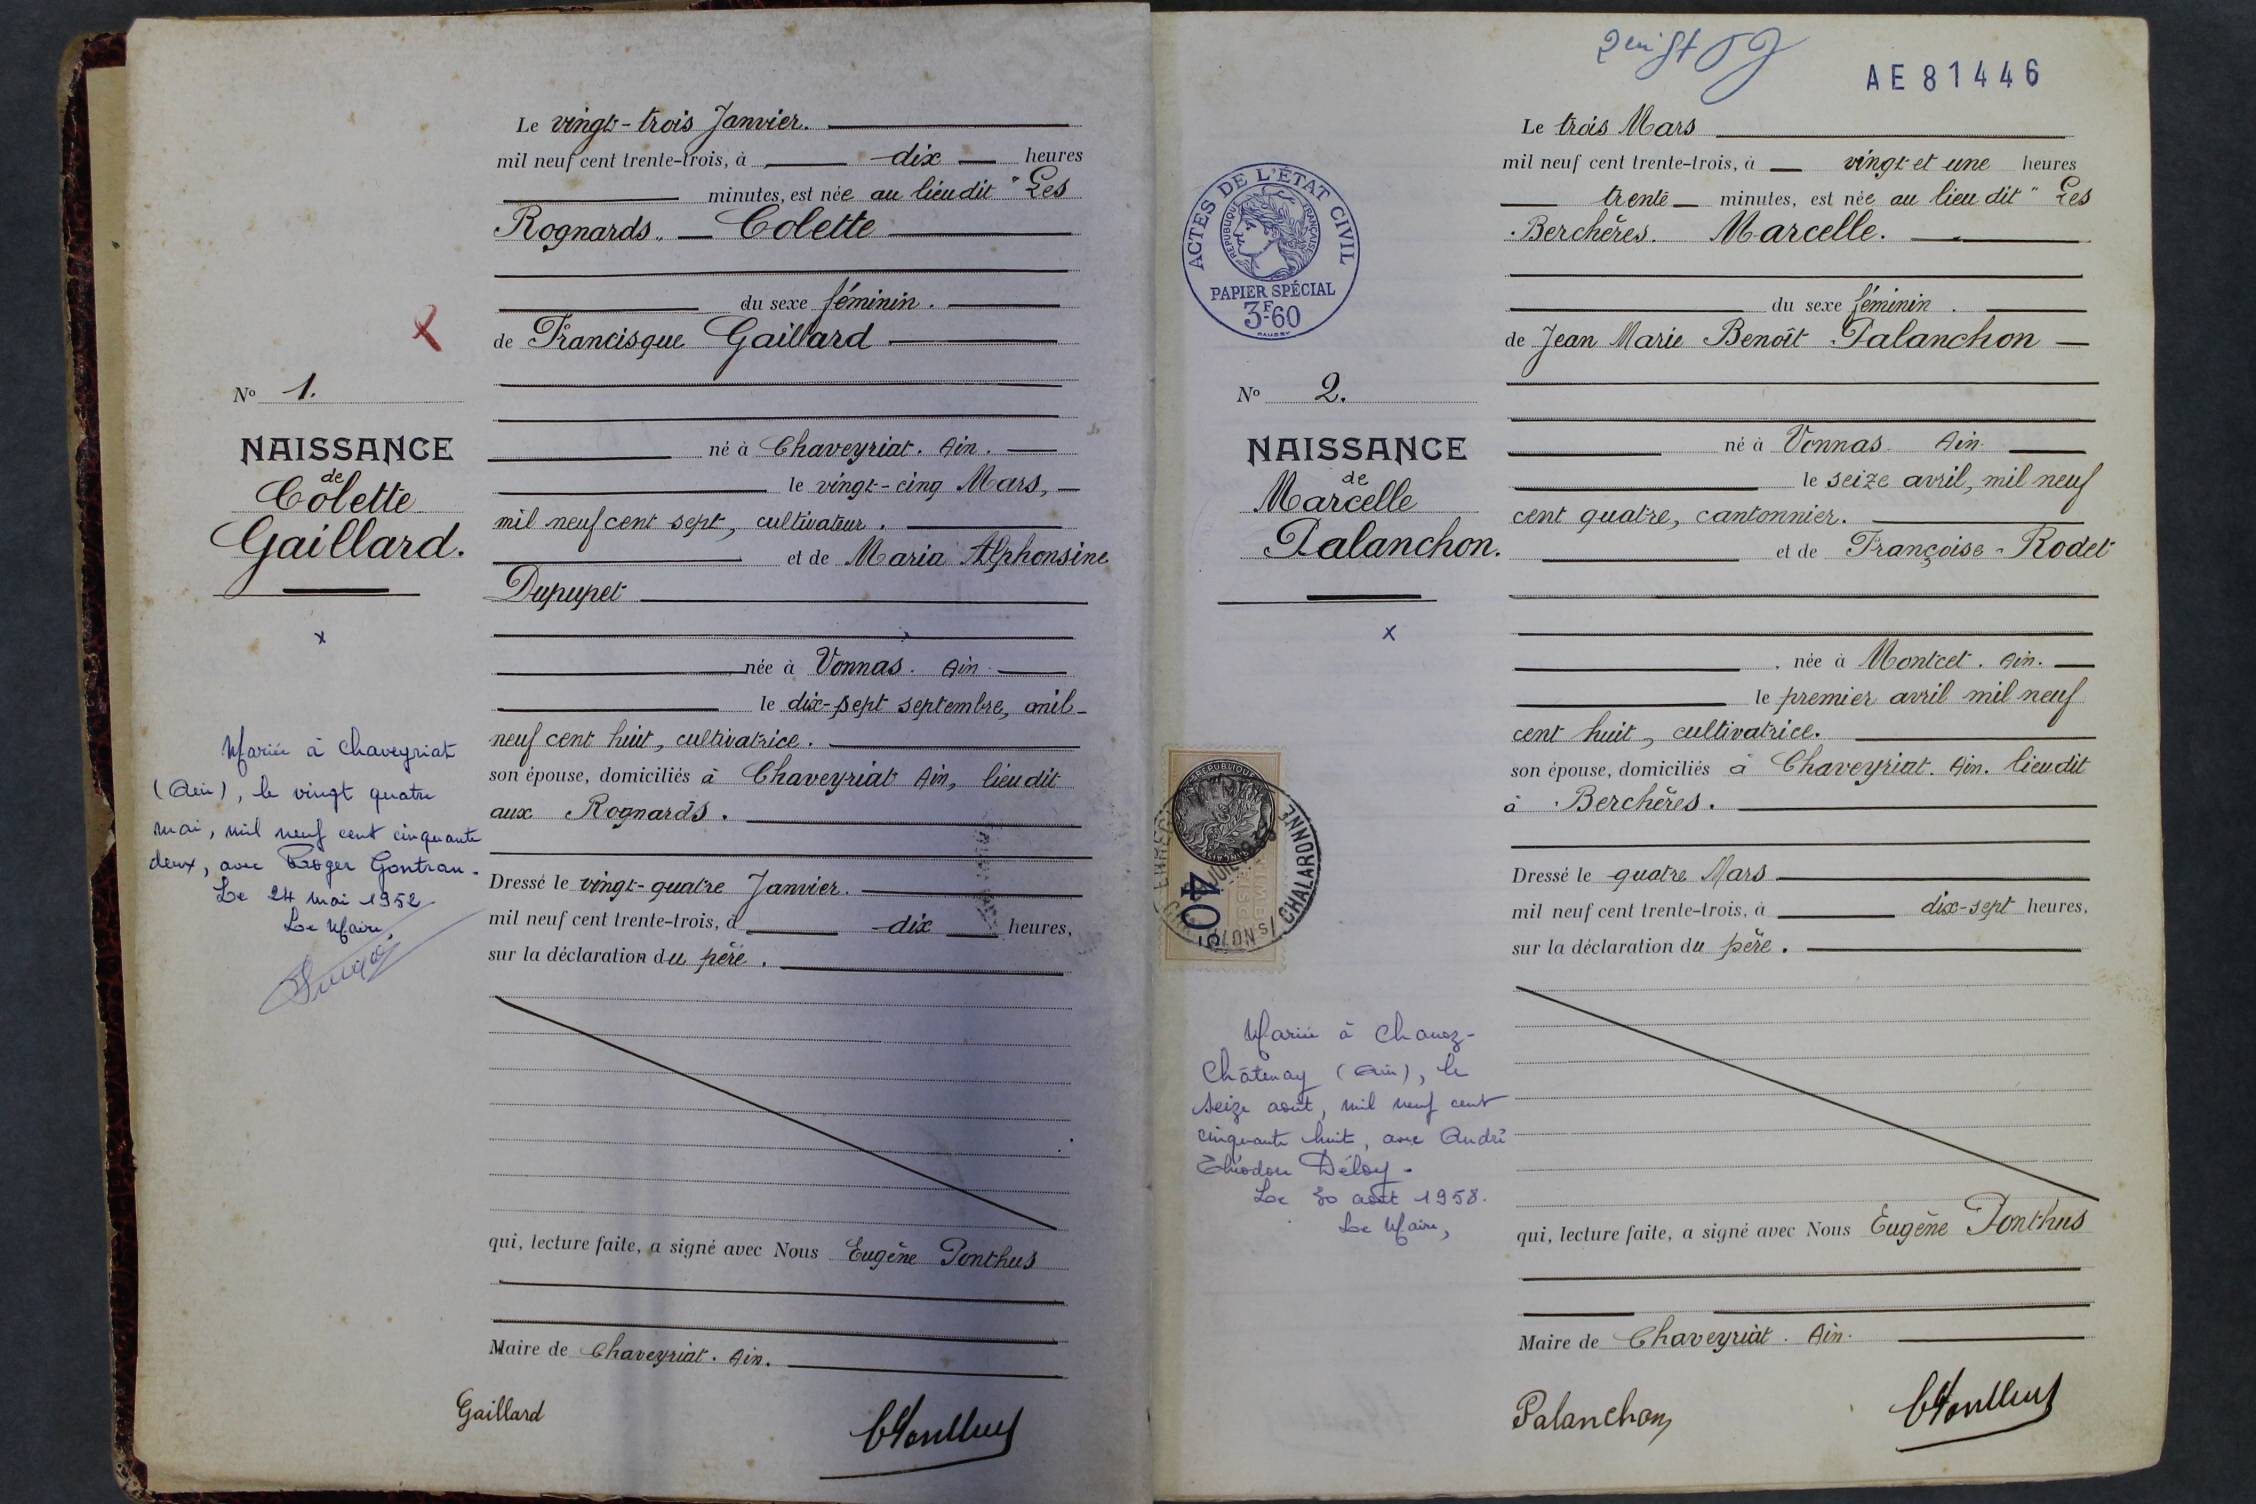 Le vingt-trois Janvier.
mil neuf cent trente-trois, à dix heures
minutes, est née au lieudit "Les
Rognards„ Colette
du sexe féminin.
de Francisque Gaillard
né à Chaveyriat. Ain.
le vingt-cinq Mars,
mil neuf cent sept, cultivateur.
et de Maria Alphonsine
Dupupet
née à Vonnas. Ain
le dix-sept septembre, mil-
neuf cent huit, cultivatrice.
son épouse, domiciliés à Chaveyriat Ain, lieudit
aux Rognards.
Dressé le vingt-quatre Janvier.
mil neuf cent trente-trois, à dix heures,
sur la déclaration du père.
qui, lecture faite, a signé avec Nous Eugène Ponthus
Maire de Chaveyriat. Ain.
Gaillard
No 1.
NAISSANCE
de
Colette
Gaillard.
x
Mariée à Chaveyriat
(Ain), le vingt quatre
mai, mil neuf cent cinquante
deux, avec Roger Gontran.
Le 24 mai 1952
Le Maire,
AE 81446
Le trois Mars
mil neuf cent trente-trois, à vingt et une heures
trente minutes, est née au lieu dit " Les
Berchères. Marcelle.
du sexe féminin.
de Jean Marie Benoît Palanchon
né à Vonnas. Ain.
le seize avril, mil neuf
cent quatre, cantonnier.
et de Françoise Rodet
née à Montcet. Ain.
le premier avril mil neuf
cent huit, cultivatrice.
son épouse, domiciliés à Chaveyriat. Ain. lieudit
à Berchères.
Dressé le quatre Mars
mil neuf cent trente-trois, à dix-sept heures,
sur la déclaration du père.
qui, lecture faite, a signé avec Nous Eugène Ponthus
Maire de Chaveyriat. Ain.
Palanchon
ACTES DE L'ÉTAT CIVIL
RÉPUBLIQUE FRANÇAISE
PAPIER SPÉCIAL
3F60
No 2.
NAISSANCE
de
Marcelle
Palanchon.
x
40
CHALARONNE
Mariée à Chanoz-
Châtenay (Ain), le
seize août, mil neuf cent
cinquante huit, avec André
Théodore Déloy.
Le 30 août 1958.
Le Maire,